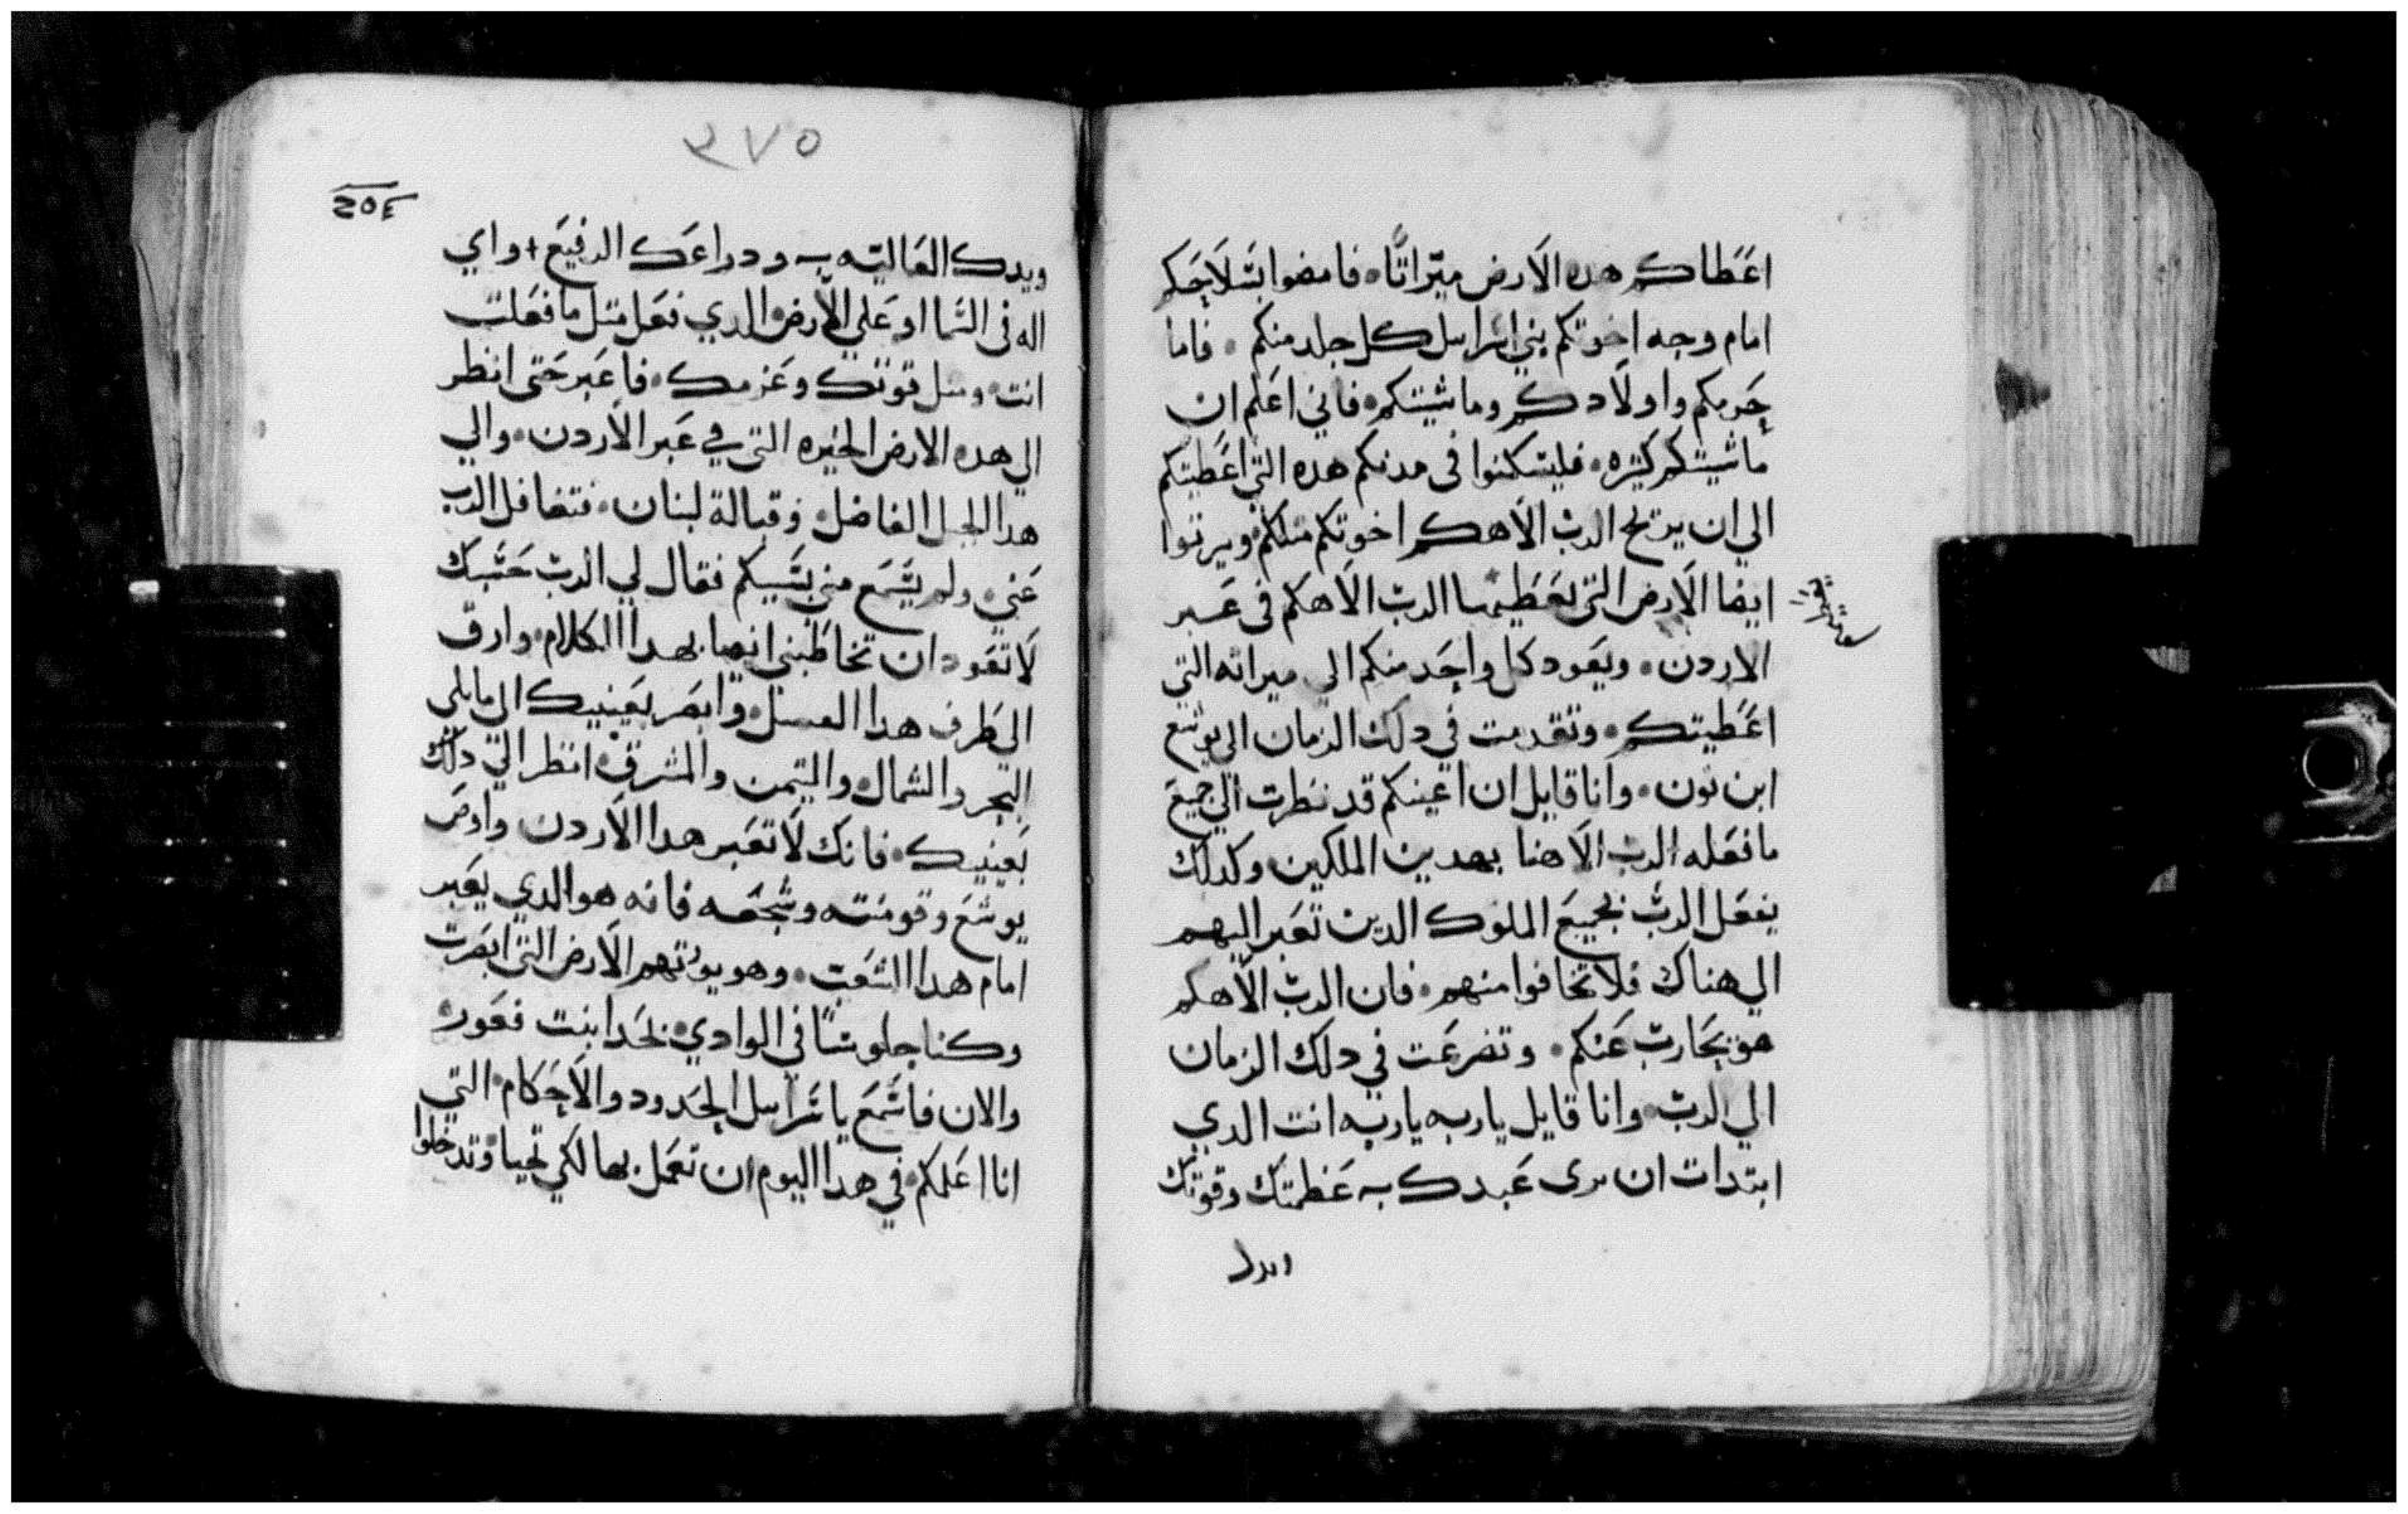 اعطاكم هده الارض ميراثا. فامضوا بسلاحكم
امام وجه اخوتكم بني اسراىيل كل جلد منكم. فاما
حريمكم واولادكم وماشيتكم. فاني اعلم ان
ماشيتكم كثيره. فليسكنوا في مدنكم هده التي اعطيتكم
الي ان يريح الرب الاهكم اخوتكم مثلكم. ويرثوا
ايضا الارض التي يعطيها الرب الاهكم في عبر
الاردن. ويعود كل واحد منكم الي ميراثه التي
اعطيتكم. وتقدمت في دلك الزمان الي يوشع
ابن نون. وانا قايل ان اعينكم قد نظرت الي جميع
ما فعله الرب الاهنا بهدين الملكين. وكدلك
يفعل الرب بجميع الملوك الدين تعبر اليهم
الي هناك فلا تخافوا منهم. فان الرب الاهكم
هو يحارب عنكم. وتضرعت في دلك الزمان
الي الرب. وانا قايل يارب يارب انت الدي
ابتدات ان يرى عبدك عظمتك وقوتك
٣٧٥
ويدك العاليه ودراعك الرفيع + واي
اله في السما او علي الارض. الدي فعل مثل ما فعلت
انت. ومثل قوتك وعزمك. فاعبر حتى انظر
الي هده الارض الخيره التي في عبر الاردن. والي
هدا الجبل الفاضل. وقبالة لبنان. فتغافل الرب
عني. ولم يسمع مني بسببكم فقال لي الرب حسبك
لا تعود ان تخاطبني ايضا بهدا الكلام. وارق
الي طرف هدا العسل. وابصر بعينيك الي ما يلي
البحر والشمال. واليمن والمشرق. انظر الي دلك
بعينيك. فانك لا تعبر هدا الاردن واوص
يوشع وقومته وشجعه فانه هو الدي يعبر
امام هدا الشعب. وهو يورثهم الارض التي ابصرت
وكنا جلوسا في الوادي. بحدا بيت فعور.
والان فاسمع ياسراىيل الحدود والاحكام. التي
انا اعلمكم. في هدا اليوم ان تعمل بها لكي تحيا. وتدخلوا